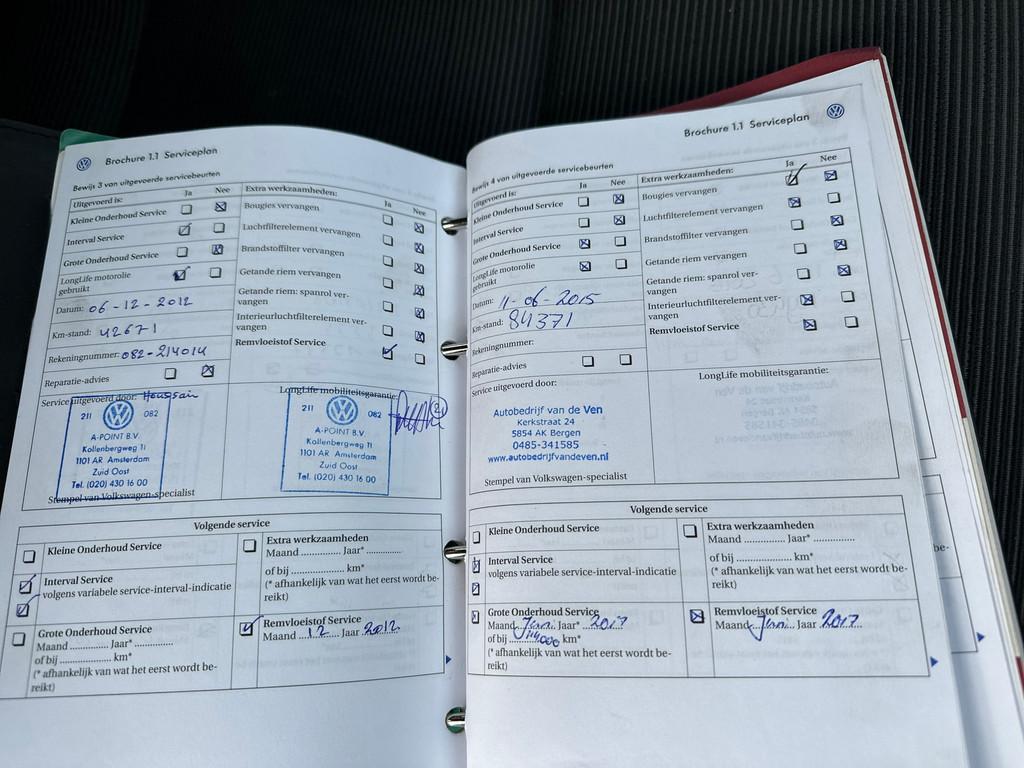 Brochure 1.1 Serviceplan
Bewijs 3 van uitgevoerde servicebeurten
Uitgevoerd is: Ja Nee
Kleine Onderhoud Service
Interval Service
Grote Onderhoud Service
LongLife motorolie
gebruikt
Datum: 06-12-2012
Km-stand: 42671
Rekeningnummer: 082-214014
Reparatie-advies
Extra werkzaamheden: Ja Nee
Bougies vervangen
Luchtfilterelement vervangen
Brandstoffilter vervangen
Getande riem vervangen
Getande riem: spanrol ver-
vangen
Interieurluchtfilterelement ver-
vangen
Remvloeistof Service
Service uitgevoerd door: Houssain
211 082
A-POINT B.V.
Kollenbergweg 11
1101 AR Amsterdam
Zuid Oost
Tel. (020) 430 16 00
Stempel van Volkswagen-specialist
LongLife mobiliteitsgarantie:
211 082
A-POINT B.V.
Kollenbergweg 11
1101 AR Amsterdam
Zuid Oost
Tel. (020) 430 16 00
Volgende service
Kleine Onderhoud Service
Interval Service
volgens variabele service-interval-indicatie
Grote Onderhoud Service
Maand .............. Jaar* ..............
of bij .............. km*
(* afhankelijk van wat het eerst wordt be-
reikt)
Extra werkzaamheden
Maand .............. Jaar* ..............
of bij .............. km*
(* afhankelijk van wat het eerst wordt be-
reikt)
Remvloeistof Service
Maand 12 Jaar 2012
Brochure 1.1 Serviceplan
Bewijs 4 van uitgevoerde servicebeurten
Uitgevoerd is: Ja Nee
Kleine Onderhoud Service
Interval Service
Grote Onderhoud Service
LongLife motorolie
gebruikt
Datum: 11-06-2015
Km-stand: 84371
Rekeningnummer:
Reparatie-advies
Extra werkzaamheden: Ja Nee
Bougies vervangen
Luchtfilterelement vervangen
Brandstoffilter vervangen
Getande riem vervangen
Getande riem: spanrol ver-
vangen
Interieurluchtfilterelement ver-
vangen
Remvloeistof Service
Service uitgevoerd door:
Autobedrijf van de Ven
Kerkstraat 24
5854 AK Bergen
0485-341585
www.autobedrijfvandeven.nl
Stempel van Volkswagen-specialist
LongLife mobiliteitsgarantie:
Volgende service
Kleine Onderhoud Service
Interval Service
volgens variabele service-interval-indicatie
Grote Onderhoud Service
Maand Juni Jaar* 2017
of bij 114000 km*
(* afhankelijk van wat het eerst wordt be-
reikt)
Extra werkzaamheden
Maand .............. Jaar* ..............
of bij .............. km*
(* afhankelijk van wat het eerst wordt be-
reikt)
Remvloeistof Service
Maand Juni Jaar 2017
be-